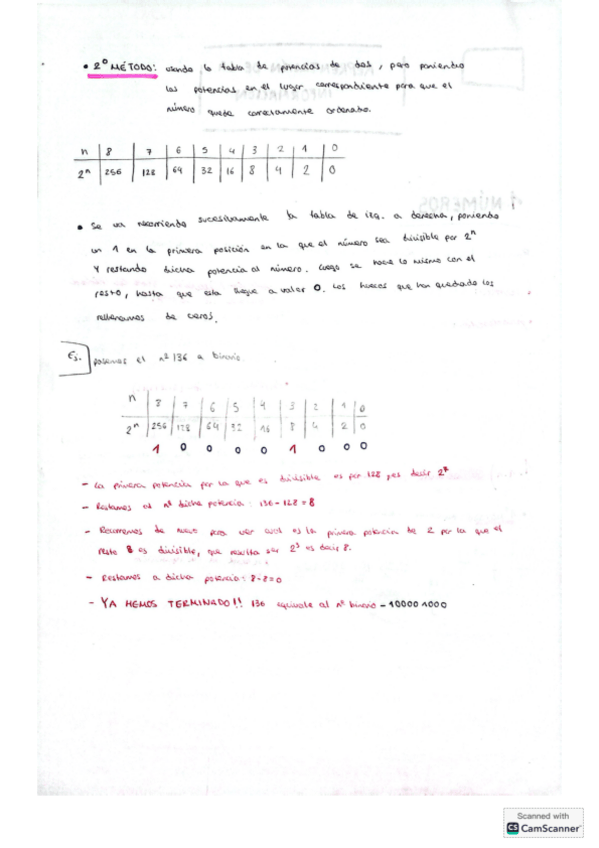 • 2º MÉTODO: usando la tabla de potencias de dos, pero poniendo
las potencias en el lugar correspondiente para que el
número quede correctamente ordenado.
n 8 7 6 5 4 3 2 1 0
2ⁿ 256 128 64 32 16 8 4 2 0
• Se va recorriendo sucesivamente la tabla de izq. a derecha, poniendo
un 1 en la primera posición en la que el número sea divisible por 2ⁿ
y restando dicha potencia al número. Luego se hace lo mismo con el
resto, hasta que esta llegue a valer 0. Los huecos que han quedado los
rellenamos de ceros.
Ej. pasemos el nº 136 a binario
n 8 7 6 5 4 3 2 1 0
2ⁿ 256 128 64 32 16 8 4 2 0
1 0 0 0 0 1 0 0 0
- La primera potencia por la que es divisible es por 128, es decir 2⁷
- Restamos al nº dicha potencia: 136-128=8
- Recorremos de nuevo para ver cual es la primera potencia de 2 por la que el
resto 8 es divisible, que resulta ser 2³ es decir 8.
- Restamos a dicha potencia: 8-8=0
- YA HEMOS TERMINADO!! 136 equivale al nº binario - 10000 1000
Scanned with
CS CamScanner